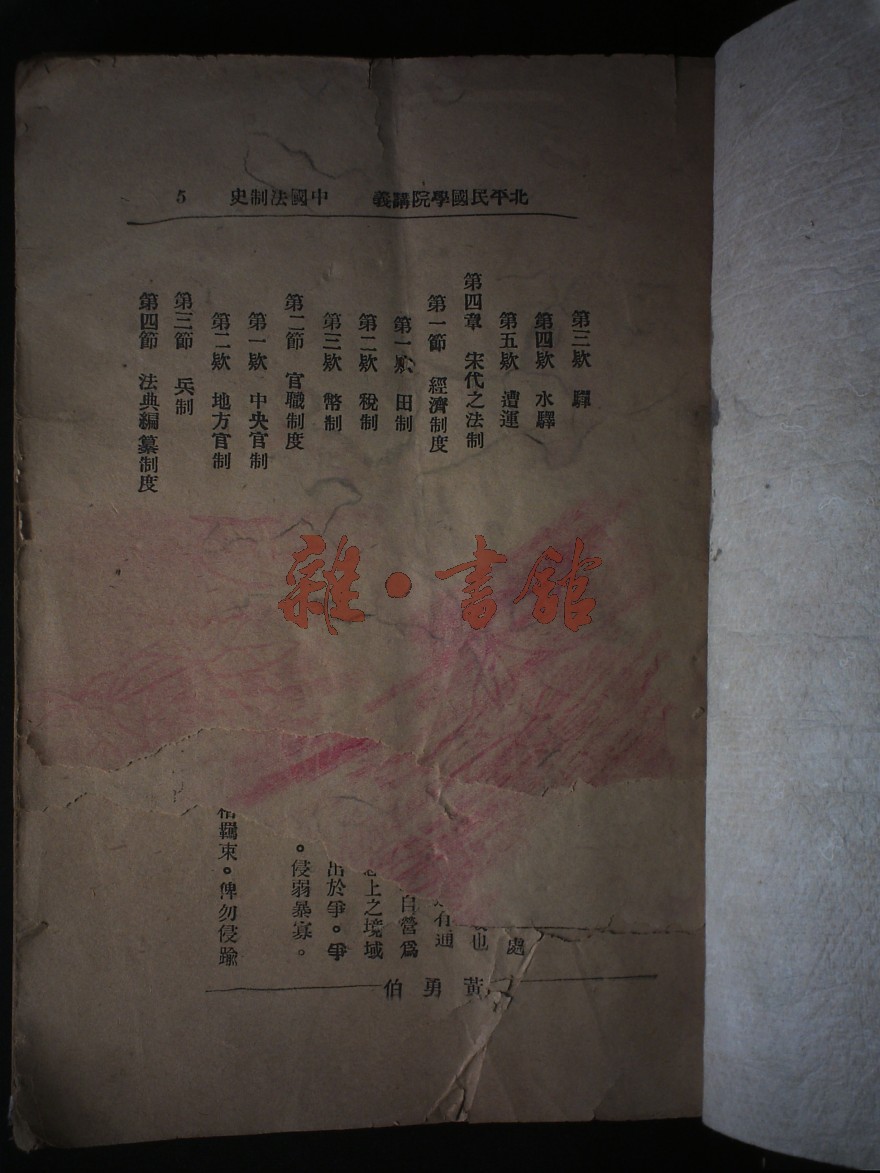 北平民國學院講義 中國法制史 5
第三欵 驛
第四欵 水驛
第五欵 遭運
第四章 宋代之法制
第一節 經濟制度
第一欵 田制
第二欵 稅制
第三欵 幣制
第二節 官職制度
第一欵 中央官制
第二欵 地方官制
第三節 兵制
第四節 法典編纂制度
雜·書館
處
也
有通
自營爲
上之境域
出於爭。爭
。侵弱暴寡。
羈束。俾勿侵踰
黃勇伯